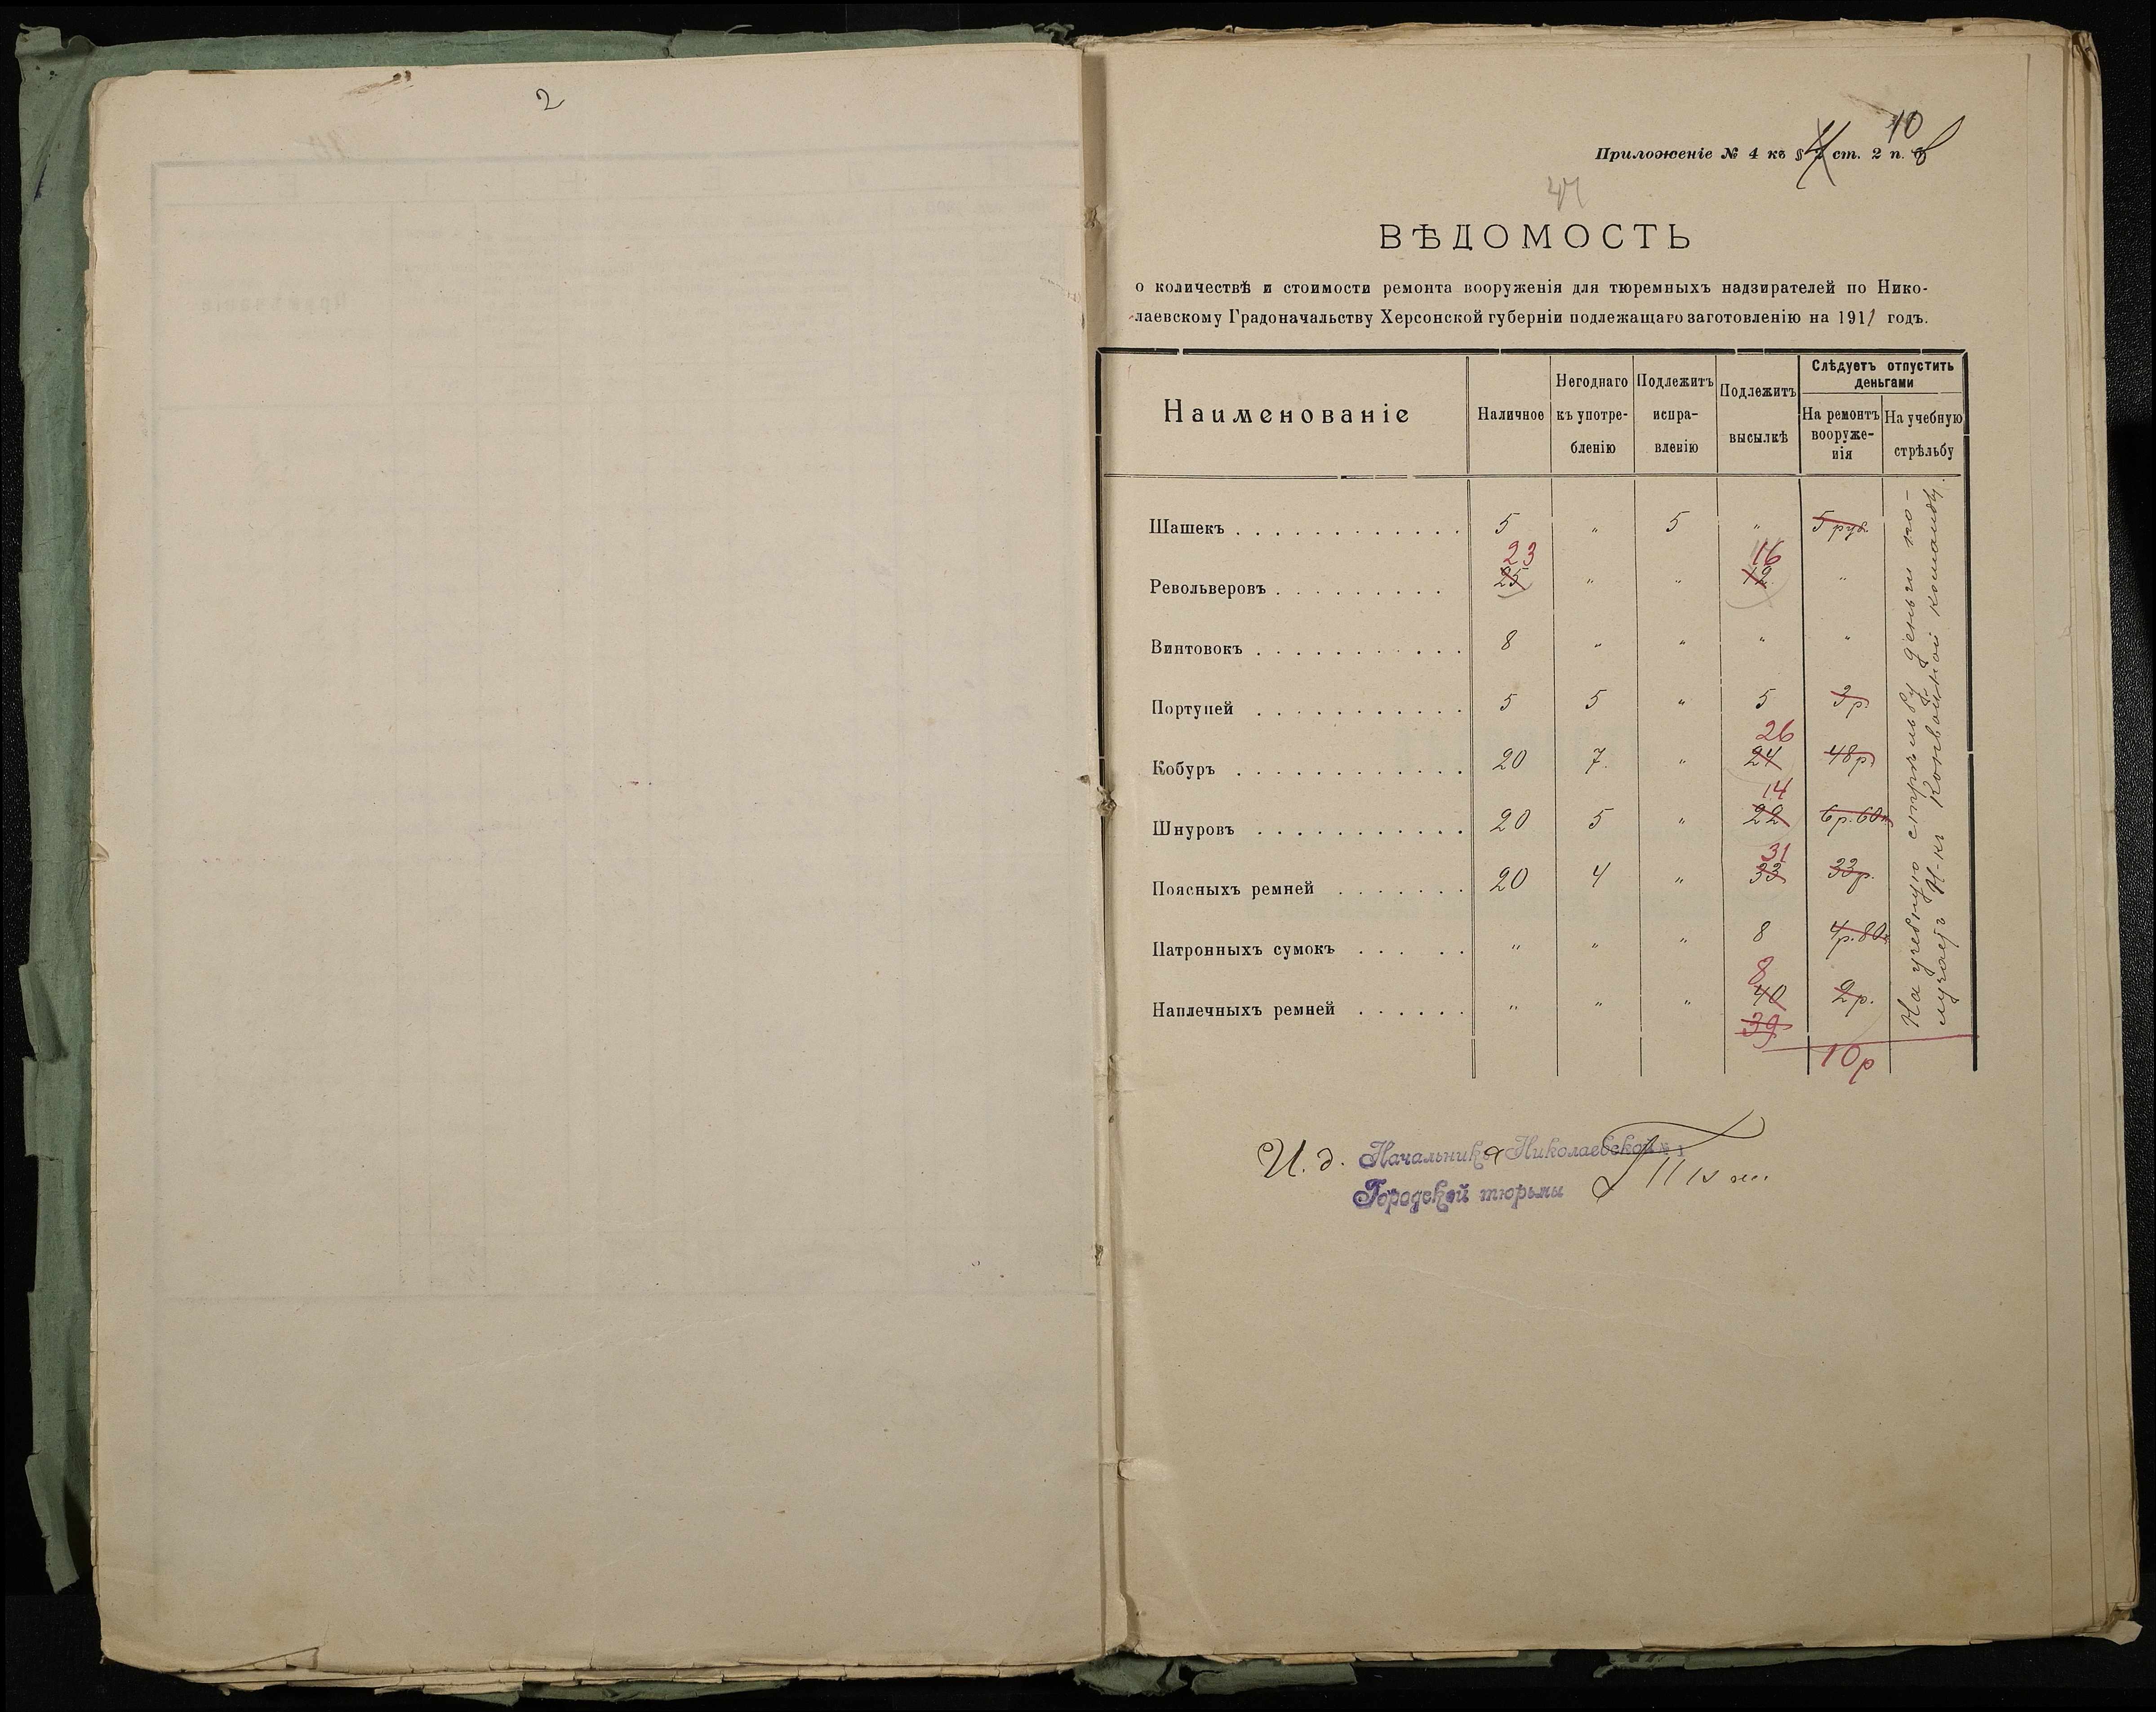 2
10
Приложеніе № 4 къ § 4 ст. 2 п. в
ВѢДОМОСТЬ
о количествѣ и стоимости ремонта вооруженія для тюремныхъ надзирателей по Нико-
лаевскому Градоначальству Херсонской губерніи подлежащаго заготовленію на 1911 годъ.
Наименованіе Наличное Негоднаго къ употре-бленію Подлежитъ испра-вленію Подлежитъ высылкѣ Слѣдуетъ отпустить деньгами На ремонтъ вооруже-нія На учебную стрѣльбу
Шашекъ 5 " 5 " 5 руб.
23 16
Револьверовъ 25 " " 12 "
Винтовокъ 8 " " " "
Портупей 5 5 " 5 3 р.
26
Кобуръ 20 7 " 24 48 р
14
Шнуровъ 20 5 " 22 6 р. 60 к
31
Поясныхъ ремней 20 4 " 33 33 р.
Патронныхъ сумокъ " " " 8 4 р. 80 к
8
Наплечныхъ ремней " " " 40 2 р.
39
10 р
На учебную стрѣльбу деньги по-
лучаетъ Н-къ Конвойной команды.
И. д. Начальника Николаевской № 1
Городской тюрьмы